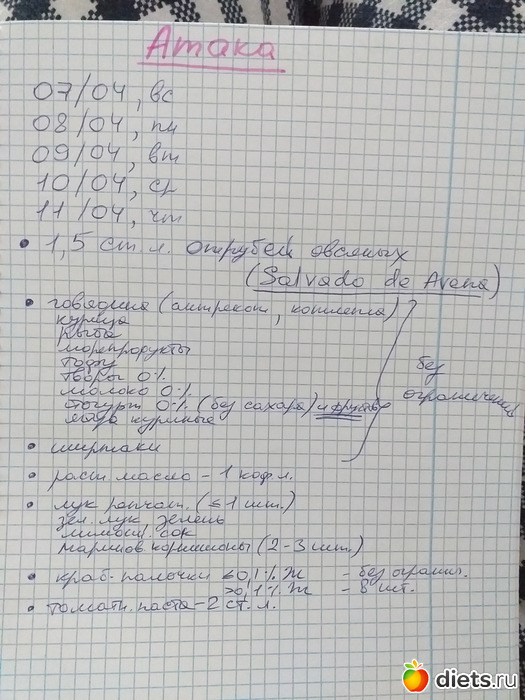 Атака
07/04, вс
08/04, пн
09/04, вт
10/04, ср
11/04, чт
• 1,5 ст. л. отрубей овсяных
(Salvado de Avena)
• говядина (антрекот, котлета)
курица
рыба
морепродукты
тофу
творог 0%
молоко 0%
йогурт 0% (без сахара) и фруктов
яйца куриные
без
ограничений
• ширтаки
• раст. масло – 1 коф. л.
• лук репчат. (≤ 1 шт.)
зел. лук, зелень
лимон. сок
маринов. корнишоны (2-3 шт.)
• краб. палочки ≤0,1% Ж – без огранич.
>0,1% Ж – 8 шт.
• томатн. паста – 2 ст. л.
diets.ru